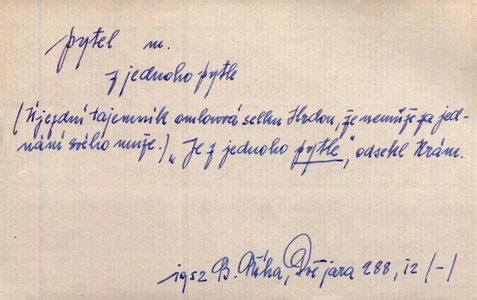 pytel m.
z jednoho pytle
(Újezdní tajemník omlouvá selku Hrdou, že nemůže za jed-
nání svého muže.) „Je z jednoho pytle", odsekl Krám.
1952 B. Říha, Dvě jara 288, 12 /-/